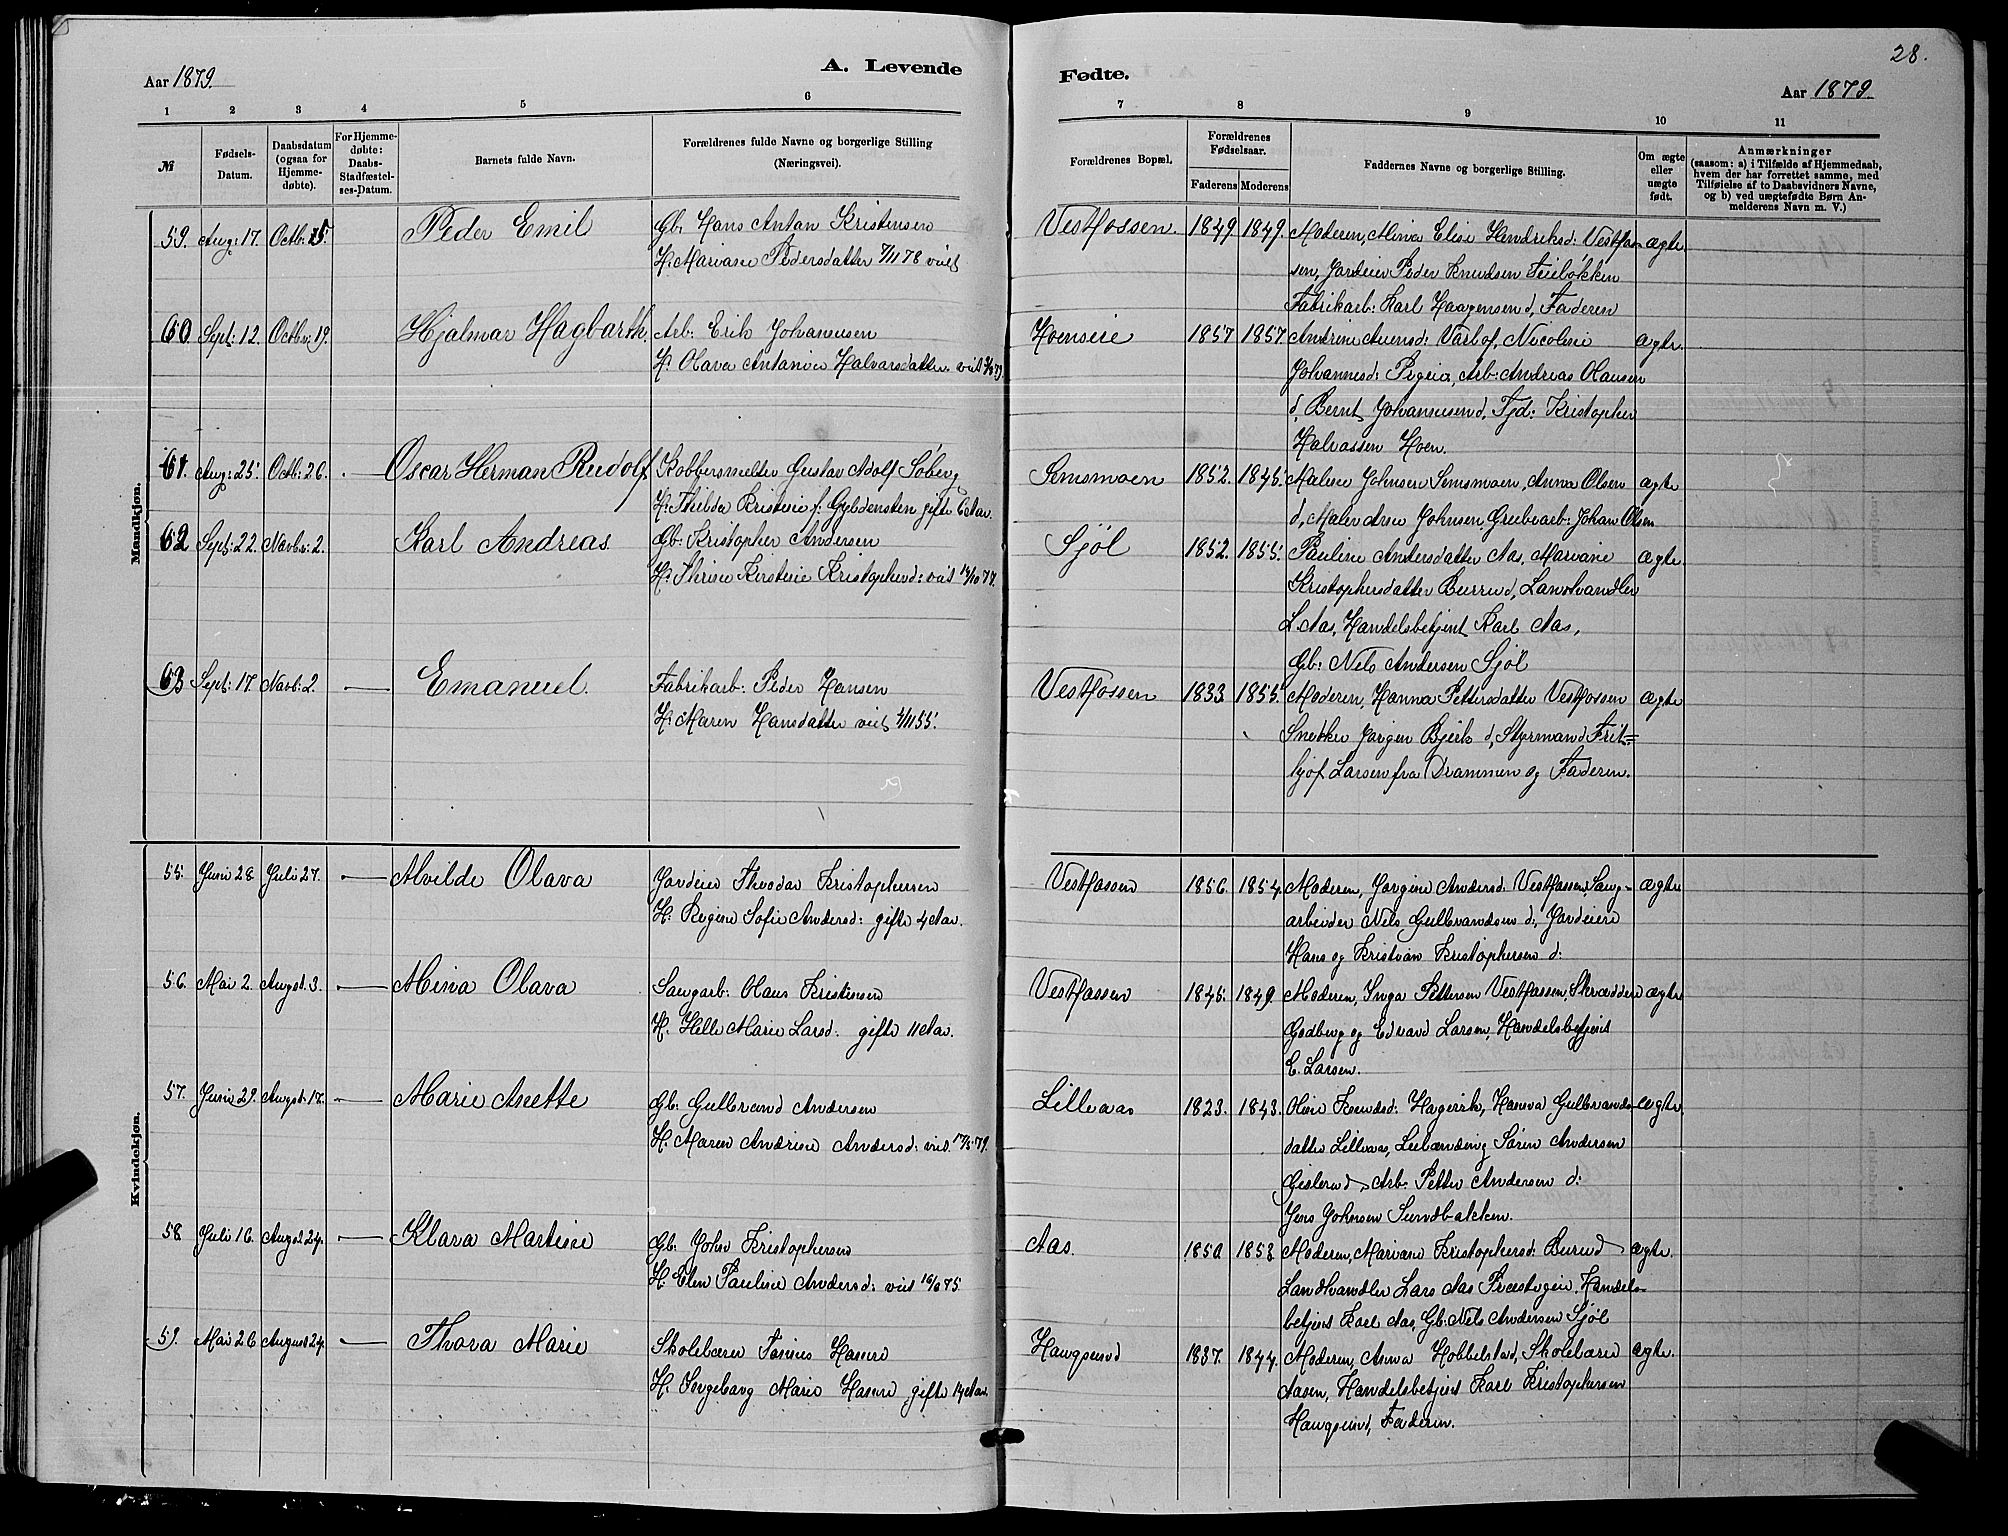 28.
Aar 1879.
A. Levende
Fødte.
Aar 1879.
1 2 3 4 5 6 7 8 9 10 11
№
Fødsels-
Datum.
Daabsdatum
(ogsaa for
Hjemme-
døbte).
For Hjemme-
døbte:
Daabs-
Stadfæstel-
ses-Datum.
Barnets fulde Navn.
Forældrenes fulde Navne og borgerlige Stilling
(Næringsvei).
Forældrenes Bopæl.
Forældrenes
Fødselsaar.
Faderens Moderens
Faddernes Navne og borgerlige Stilling.
Om ægte
eller
uægte
født.
Anmærkninger
(saasom: a) i Tilfælde af Hjemmedaab,
hvem der har forrettet samme, med
Tilføielse af to Daabsvidners Navne,
og b) ved uægtefødte Børn An-
melderens Navn m. V.)
Mandkjøn.
59. Aug: 17. Octb: 5. Peder Emil
Gb: Hans Antan Kristensen
H: Mariane Pedersdatter 7/11 78 viet
Vestfossen 1849 1849.
Moderen, Mina Elise Hendriksd: Vestfos- ægte
sen, Jardeier Peder Knudsen Teiebokken
Fabrikarb: Karl Haagensen d, Faderen
60 Sept: 12. Octbr: 19. Hjalmar Hagbarth.
Arb: Erik Johannesen
H: Olava Antanie Halvarsdatter viet
Hoenseie 1857 1857
Andrine Auensd: Varlof, Nicoline ægte.
Johannesd: Pigeie, Arb: Andreas Olausen
d, Bernt Johannesen d, Fgd: Kristopher
Halvassen Hoen.
61. Aug: 25. Octb: 26. Oscar Herman Rudolf
Kobbersmelter Gustav Adolf Söberg
H: Thilda Kristine f: Gyldensten gifte 6 Aar.
Semsmoen 1852. 1845.
Malene Johnsen Semsmoen, Anna Olsen ægte
d, Maler Arne Johnsen, Grubearb: Johan Olsen
62 Sept: 22. Novbr: 2. Karl Andreas
Gb: Kristopher Andersen
H: Thrine Kirstine Kristophersd: viet 14/10 77.
Sjöl 1852. 1855.
Pauline Andersdatter Aas, Mariane ægte.
Kristophersdatter Burrud, Landhandler
L. Aas, Handelsbetjent Karl Aas,
Gb: Nels Andersen Sjöl
63 Sept: 17 Novb: 2. Emanuel.
Fabrikarb: Peder Hansen
H: Maren Hansdatter viet 4/11 55.
Vestfossen 1833 1855.
Moderen, Hanna Pettersdatter Vestfossen ægte
Snedker Jørgen Bjerk d, Styrmand Frit=
hjof Larsen fra Drammen og Faderen.
Kvindekjøn.
55. Juni 28 Juli 27. Alvilde Olava
Jardeier Theodar Kristophersen
H: Regine Sofie Andersd: gifte 4 Aar.
Vestfossen 1856. 1854.
Moderen, Jørgine Andersd: Vestfossen, Saug- ægte
arbeider Nels Gulbrandsen d:, Jardeiere
Hans og Kristian Kristophersen d:
56. Mai 2. Augst. 3. Mina Olava
Saugarb: Olaus Kristensen
H: Helle Marie Larsd: gifte 11 Aar.
Vestfossen 1845. 1849.
Moderen, Inga Pettersen Vestfossen, Skrædder ægte
Godberg og Edvard Larsen, Handelsbetjent
E. Larsen.
57. Juni 29. Augst. 17. Marie Anette
Gb: Gulbrand Andersen
H: Maren Andrine Andersd: viet 17/5 79.
Lilleaas 1823. 1843.
Oline Knudsd: Hagerik, Hanna Gulbrands- ægte
datter Lilleaas, Leilænding Sören Andersen
Gislerud, Arb: Petter Andersen d:
Jens Johnsen Sundbakken.
58 Juli 16. Augst. 24. Klara Martine
Gb: John Kristophersen
H. Elen Pauline Andersd: viet 16/6 75.
Aas. 1850 1853
Moderen, Mariane Kristophersd: Burud ægte.
Landhandler Lars Aas Præstegien, Handels-
betjent Karl Aas, Gb: Nels Andersen Sjöl
59. Mai 26 August 24. Thora Marie
Skolelærer Tønnes Hasun
H. Ingebarg Marie Hasun gifte 14 Aar.
Haugsund 1837. 1844.
Moderen, Anna Hobbelstad, Skolelærer ægte.
Aasen, Handelsbetjent Karl Kristophersen
Haugsund, Faderen.